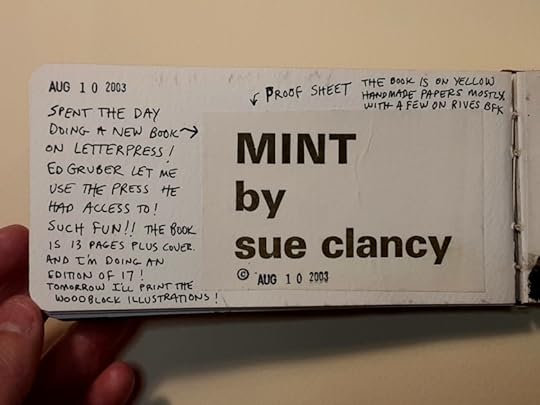 AUG 10 2003
SPENT THE DAY
DOING A NEW BOOK →
ON LETTERPRESS!
ED GRUBER LET ME
USE THE PRESS HE
HAD ACCESS TO!
SUCH FUN!! THE BOOK
IS 13 PAGES PLUS COVER.
AND I'M DOING AN
EDITION OF 17!
TOMORROW I'LL PRINT THE
WOODBLOCK ILLUSTRATIONS!
PROOF SHEET
THE BOOK IS ON YELLOW
HANDMADE PAPERS MOSTLY
WITH A FEW ON RIVES BFK
MINT
by
sue clancy
© AUG 10 2003